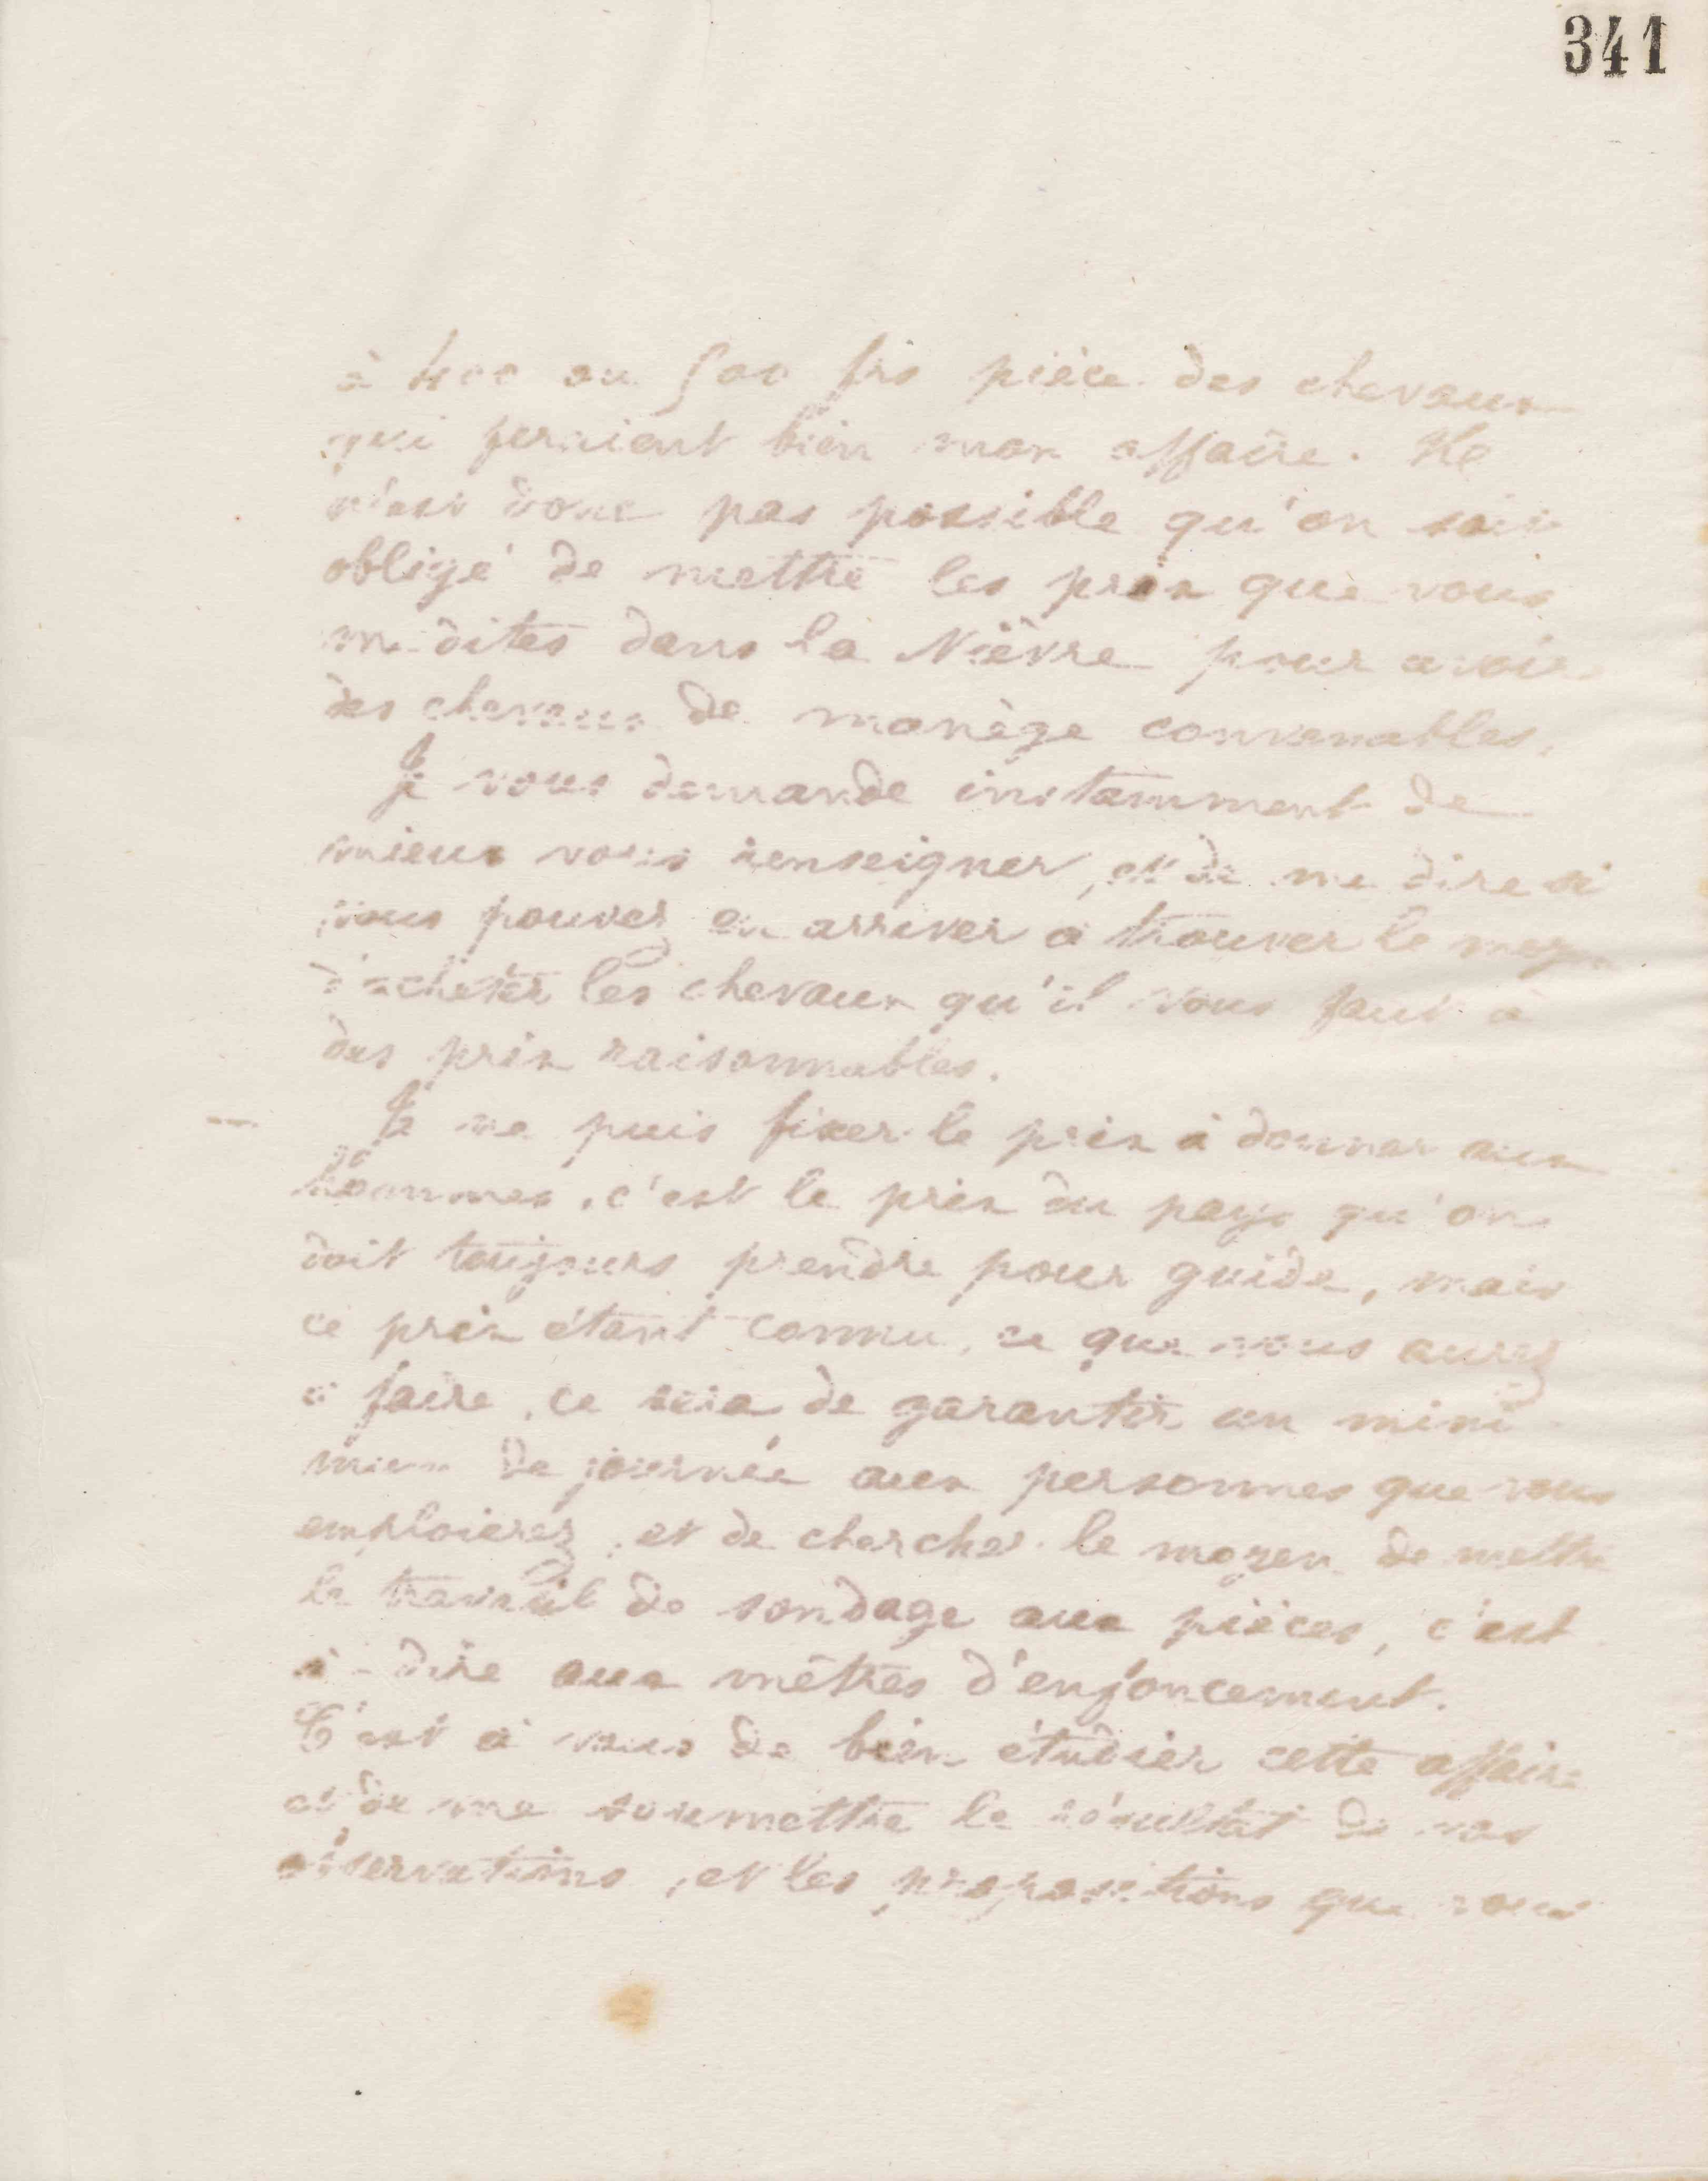 341
à 400 ou 500 frs pièce des chevaux
qui feraient bien mon affaire. Il
n'est donc pas possible qu'on soit
obligé de mettre les prix que vous
me dites dans la Nièvre pour avoir
des chevaux de manège convenables.
Je vous demande instamment de
mieux vous renseigner, et de me dire si
vous pouvez en arriver à trouver le moy.
d'acheter les chevaux qu'il vous faut à
des prix raisonnables.
Je ne puis fixer le prix à donner aux
hommes, c'est le prix du pays qu'on
doit toujours prendre pour guide, mais
ce prix étant connu, ce que vous aurez
à faire, ce sera de garantir un mini
mum de journée aux personnes que vous
emploierez, et de chercher le moyen de mettre
le travail de sondage aux pièces, c'est
à-dire aux mètres d'enfoncement.
C'est à vous de bien étudier cette affaire
et de me soumettre le résultat de vos
observations, et les propositions que vous